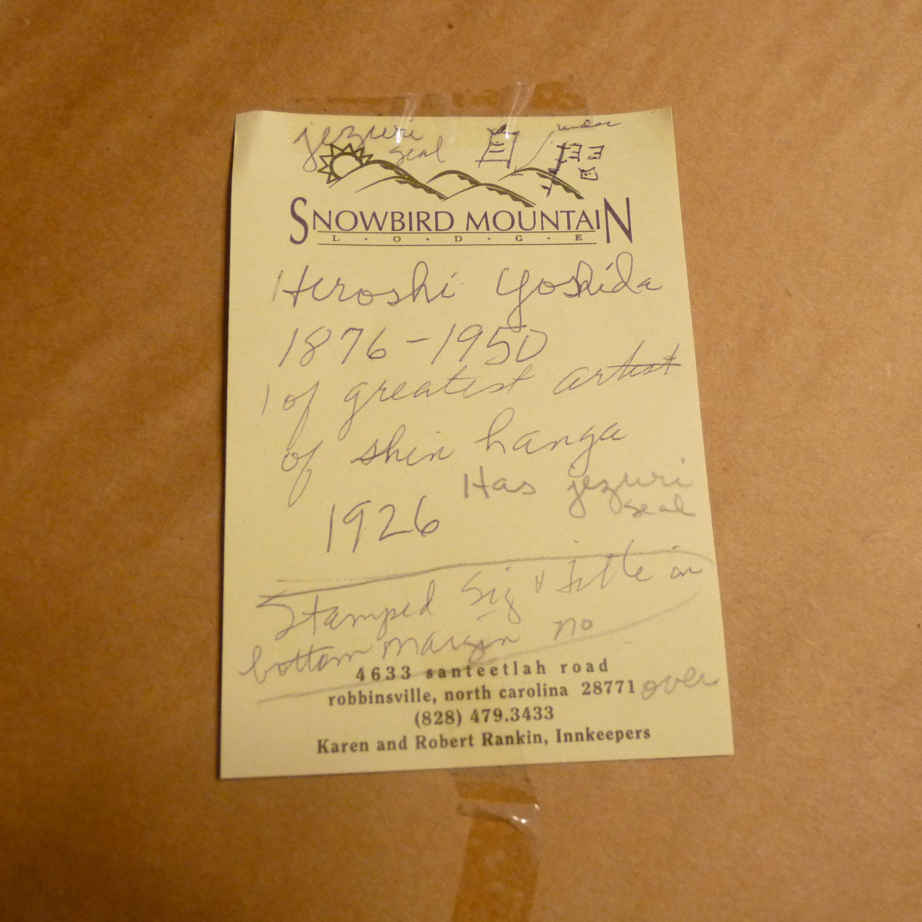 jezuri
seal
under
SNOWBIRD MOUNTAIN
L·O·D·G·E
Hiroshi Yoshida
1876-1950
1 of greatest artist
of shin hanga
Has jezuri
seal
1926
Stamped Sig & Title in
bottom margin no
4633 santeetlah road
robbinsville, north carolina 28771
over
(828) 479.3433
Karen and Robert Rankin, Innkeepers